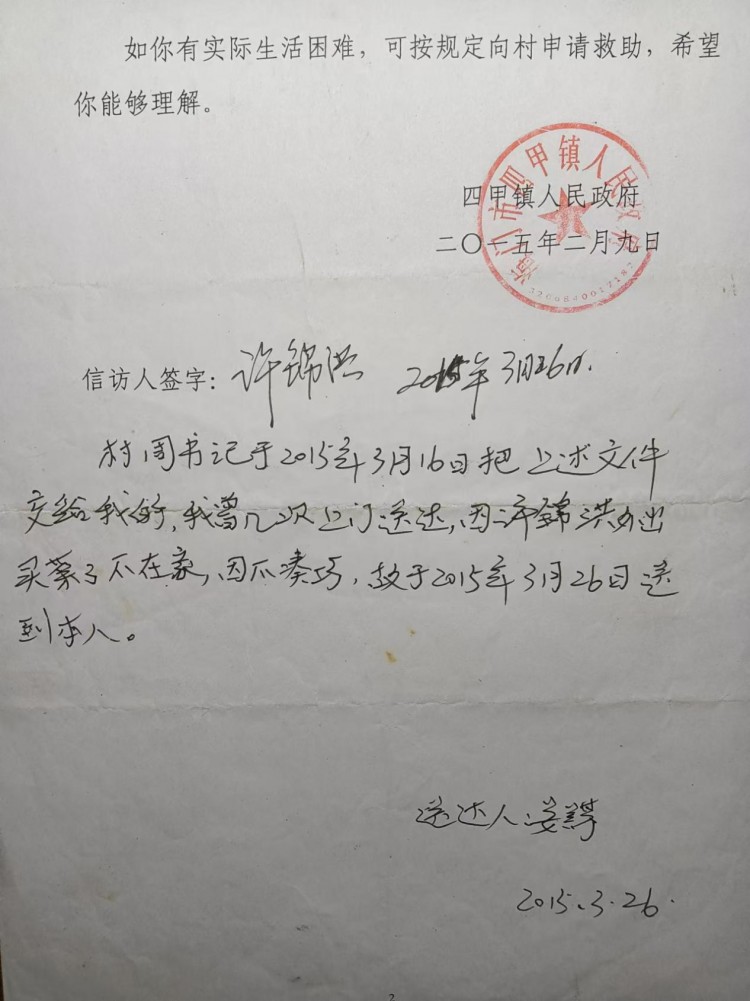 如你有实际生活困难，可按规定向村申请救助，希望
你能够理解。
海门市四甲镇人民政府
四甲镇人民政府
二〇一五年二月九日
3206840017187
信访人签字：许锦洪 2015年3月26日.
村周书记于2015年3月16日把上述文件
交给我的，我曾几次上门送达，因许锦洪外出
买菜了不在家，因不凑巧，故于2015年3月26日送
到本人。
送达人：姜
2015.3.26.
2